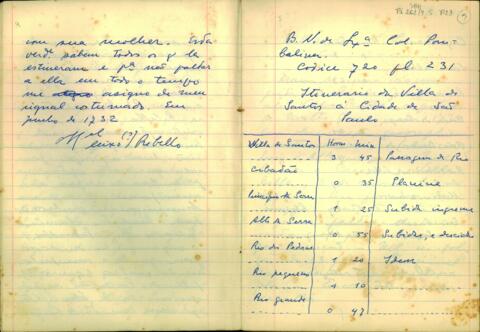 com sua molher. Esta
verd.e sabem todos os q̃ la
estiveram e p.a não faltar
a ella em todo o tempo
me assigno de meu
signal costumado. Em
junho de 1732
M.el Rebello
B. N. de Lxª Col. Pom-
balina.
Codice 720 fl 231
Itenerario da Villa de
Santos á Cidade de São
Paulo
Villa de Santos Horas Min
3 45 Passagem de Rio
Cubadão
0 35 Planicie
Principio de Serra
1 25 Subida ingreme
Alto da Serra
0 55 Subidas, e descidas
Rio das Pedras
1 20 Idem
Rio pequeno
1 10
Rio grande
0 47